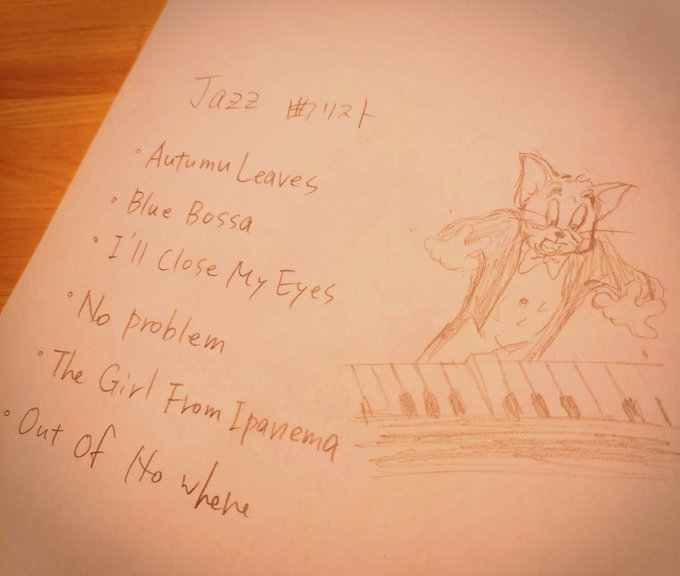 Jazz 曲リスト
・Autumu Leaves
・Blue Bossa
・I'll Close My Eyes
・No problem
・The Girl From Ipanema
・Out Of No where